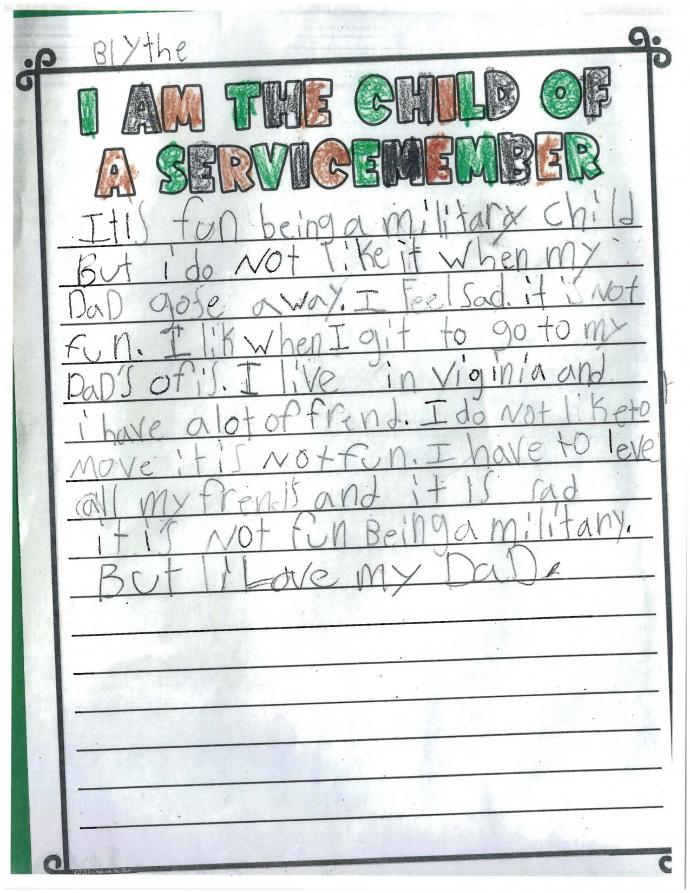 Blythe
I AM THE CHILD OF
A SERVICEMEMBER
It is fun being a military child
But i do Not like it when my
DaD gose away. I Feel sad. it is Not
fun. I lik when I git to go to my
DaD's ofis. I live in Viginia and
i have alot of frend. I do Not like to
move it is Not fun. I have to leve
all my frends and it is sad
it is Not fun Being a military.
But I Love my DaD.